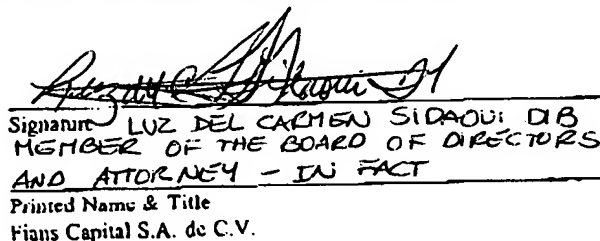 Signature LUZ DEL CARMEN SIDAOUI DIB
MEMBER OF THE BOARD OF DIRECTORS
AND ATTORNEY - IN FACT
Printed Name & Title
Fians Capital S.A. de C.V.